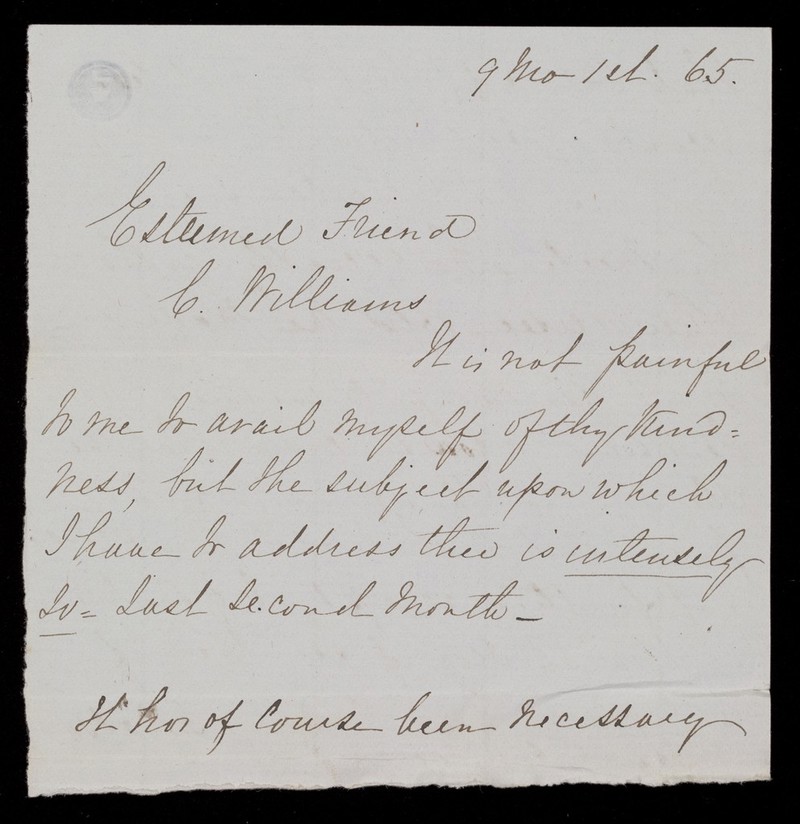 9 Mo 1st. 65.
Esteemed Friend
C. Williams
It is not painful
to me to avail myself of thy Kind=
ness, but the subject upon which
I have to address thee is intensely
so= Last Second Month_
It has of Course been necessary